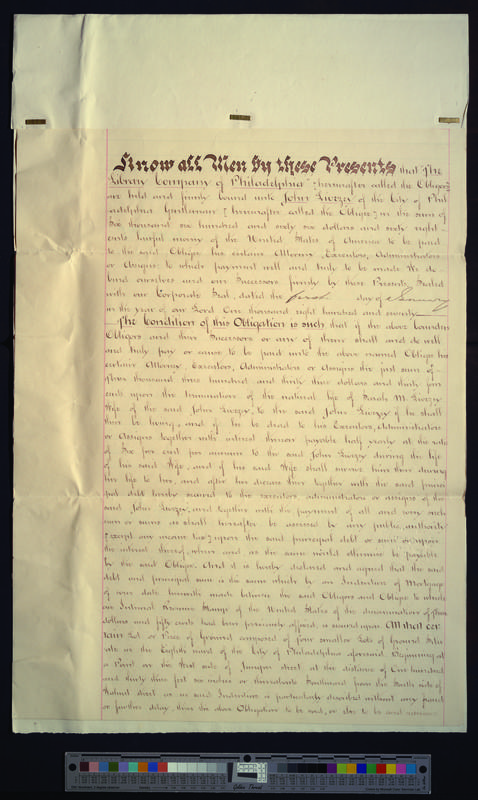 Know all Men by these Presents that The
Library Company of Philadelphia, hereinafter called the Obligors,
are held and firmly bound unto John Livezey of the City of Phil
adelphia Gentleman, hereinafter called the Obligee, in the sum of
Six thousand six hundred and sixty six dollars and sixty eight
cents lawful money of the United States of America to be paid
to the said Obligee his certain Attorney, Executors, Administrators
or Assigns to which payment well and truly to be made We do
bind ourselves and our Successors firmly by these Presents. Sealed
with our Corporate Seal, dated the first day of January
in the year of our Lord One thousand eight hundred and seventy
The Condition of this Obligation is such that if the above bounden
Obligors and their Successors or any of them shall and do well
and truly pay or cause to be paid unto the above named Obligee his
certain Attorney, Executors, Administrators or Assigns the just sum of
Three thousand three hundred and thirty three dollars and thirty four
cents upon the termination of the natural life of Sarah M. Livezey
Wife of the said John Livezey, to the said John Livezey if he shall
then be living, and if he be dead to his Executors, Administrators
or Assigns together with interest thereon payable half yearly at the rate
of Six per cent per annum to the said John Livezey during the life
of his said Wife, and if his said Wife shall survive him then during
her life to her, and after her decease then together with the said princi
pal debt hereby secured to the executors, administrators or assigns of the
said John Livezey, and together with the payment of all and every such
sum or sums as shall hereafter be assessed by any public authority
(except any income tax) upon the said principal debt or sum or upon
the interest thereof, when and as the same would otherwise be payable
by the said Obligee. And it is hereby declared and agreed that the said
debt and principal sum is the same which by an Indenture of Mortgage
of even date herewith made between the said Obligors and Obligee to which
an Internal Revenue Stamp of the United States of the denomination of three
dollars and fifty cents had been previously affixed, is secured upon All that cer
tain Lot or Piece of Ground composed of four smaller Lots of Ground Situ
ate in the Eighth ward of the City of Philadelphia aforesaid. Beginning at
a Point on the West side of Juniper street at the distance of One hundred
and thirty three feet six inches or thereabouts Southward from the South side of
Walnut street as in said Indenture is particularly described without any fraud
or further delay, then the above Obligation to be void, or else to be and